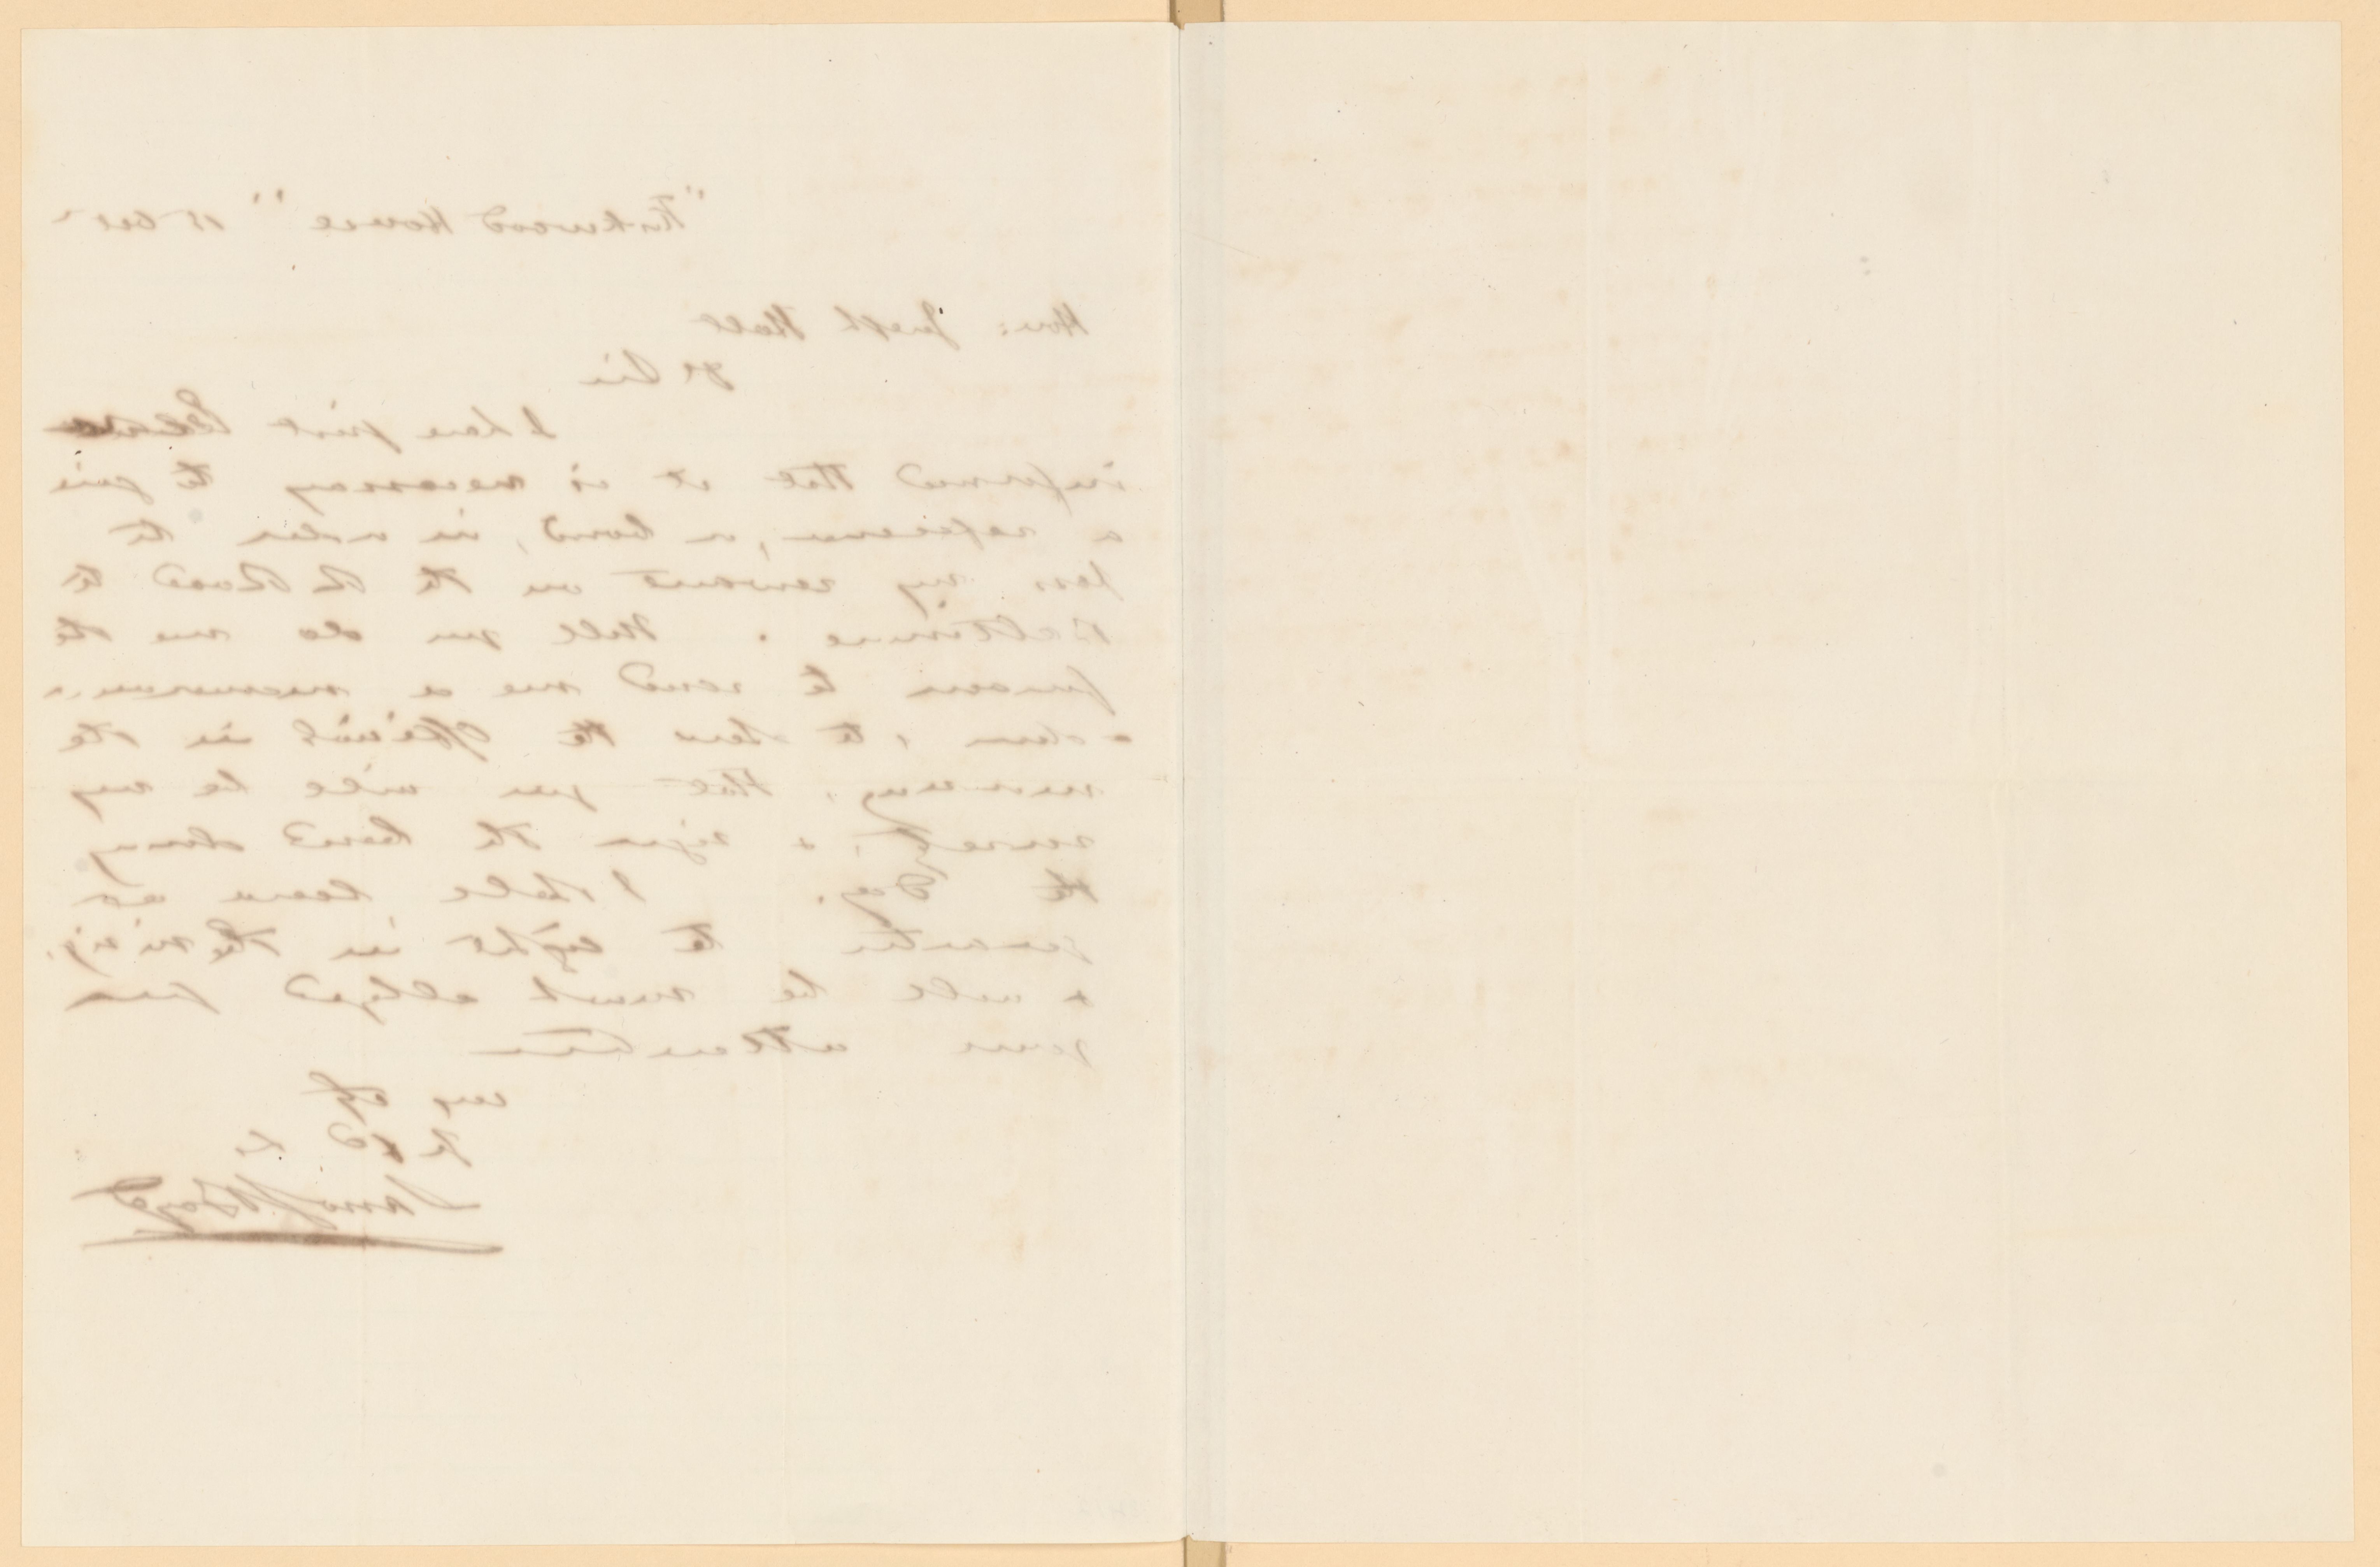 "Kirkwood House" 15 Oct
Hon: Joseph Hall
Dr Sir
I have just
informed that it is necessary to give
a reference, or bond, in order to
pass my servant on the R Road to
Baltimore. Will you do me the
to send me a memoran
dum, to show the Officials in the
morning, that you will be my
surety, & sign the bond during
the Day. I shall leave at
quarter to eight in the
& will be much obliged for
your attention